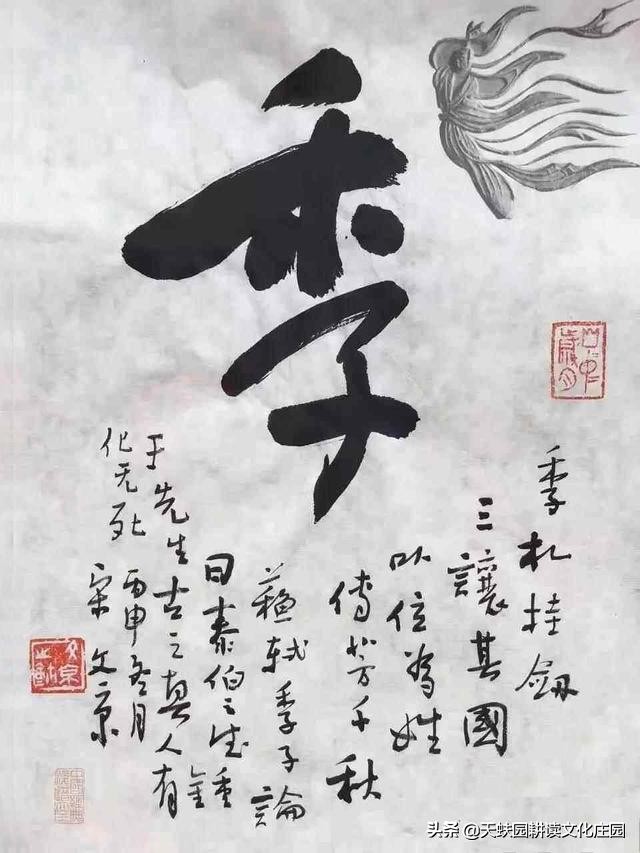 季
季札挂劔
三讓其國
以位為姓
傳芳千秋
蘇軾季子論
曰泰伯之德鍾
于先生古之真人有
化无死
丙申冬月
宋文京
山中歲月
头条 @天蚨园耕读文化庄园